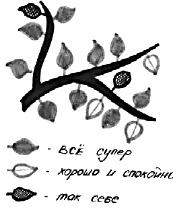 - всё супер
- хорошо и спокойно
- так себе